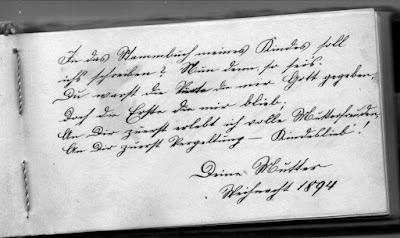 In das Stammbuch meines Kindes soll
ich's schreiben? Nun denn so sei's:
Du warst die  da mir Gott gegeben,
Doch die Erste die mir blieb;
An Dir zuerst erlebt ich volle Mutterfreuden,
An Dir zuerst Vergeltung – Kindeslieb'!
Deine Mutter
Weihnacht 1894